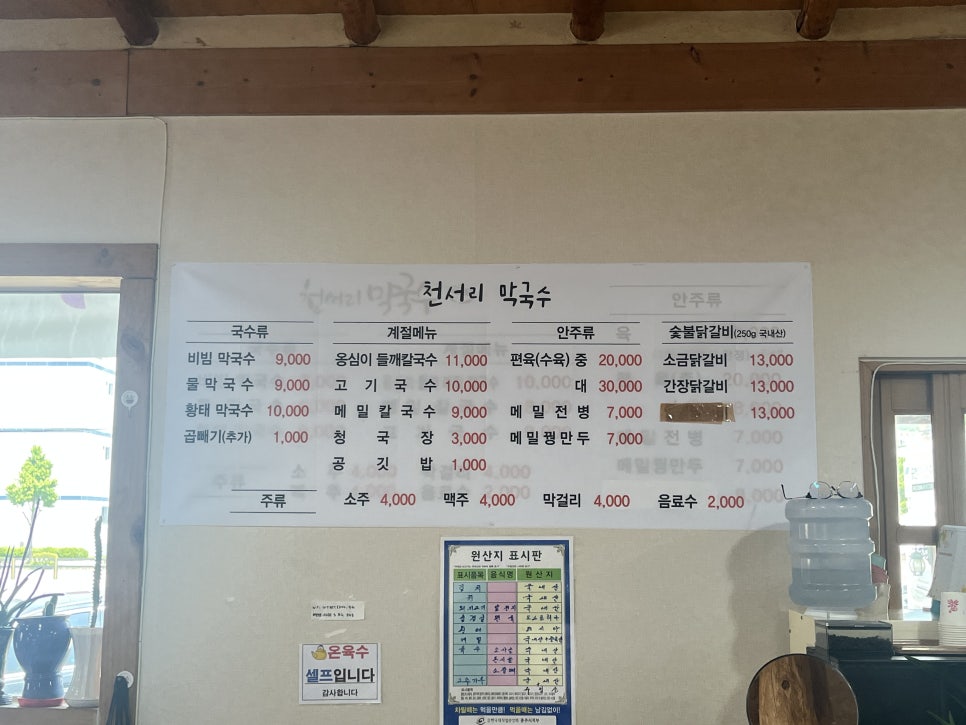 천서리 막국수
국수류
비빔 막국수 9,000
물 막국수 9,000
황태 막국수 10,000
곱빼기(추가) 1,000
계절메뉴
옹심이 들깨칼국수 11,000
고기국수 10,000
메밀칼국수 9,000
청국장 3,000
공깃밥 1,000
안주류
편육(수육) 중 20,000
대 30,000
메밀전병 7,000
메밀꿩만두 7,000
숯불닭갈비(250g 국내산)
소금닭갈비 13,000
간장닭갈비 13,000
13,000
주류 소주 4,000 맥주 4,000 막걸리 4,000 음료수 2,000
원산지 표시판
표시품목 음식명 원산지
온육수
셀프입니다
감사합니다
차릴때는 먹을만큼! 먹을때는 남김없이!